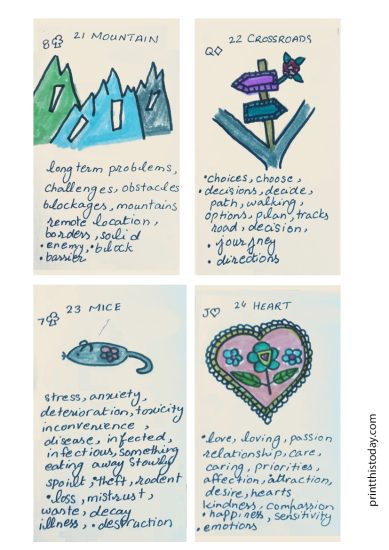 8♣ 21 MOUNTAIN
long term problems,
challenges, obstacles
blockages, mountains
remote location,
borders, solid
• enemy, • block
• barrier
Q◇ 22 CROSSROADS
• choices, choose,
• decisions, decide,
path, walking,
options, plan, tracks
road, decision,
• journey
• directions
7♣ 23 MICE
stress, anxiety,
deterioration, toxicity
inconvenience,
disease, infected,
infectious, something
eating away slowly
spoilt, theft, rodent
• loss, mistrust,
waste, decay
illness, • destruction
J♡ 24 HEART
• love, loving, passion
relationship, care,
caring, priorities,
affection, attraction,
desire, hearts
kindness, compassion
• happiness, sensitivity
• emotions
printthistoday.com